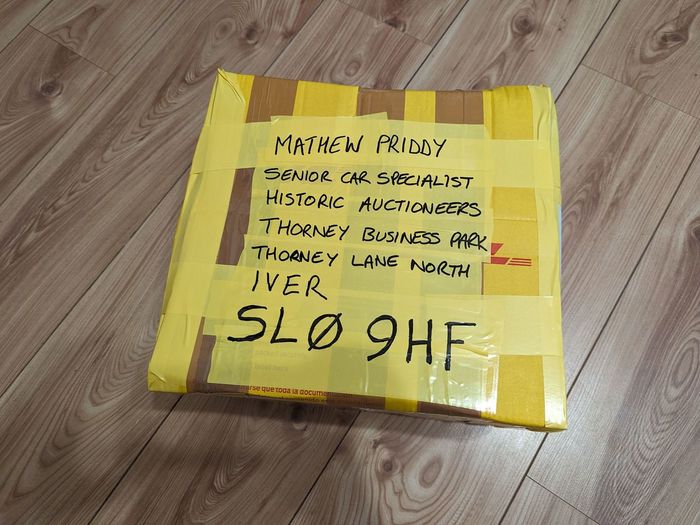 MATHEW PRIDDY
SENIOR CAR SPECIALIST
HISTORIC AUCTIONEERS
THORNEY BUSINESS PARK
THORNEY LANE NORTH
IVER
SLØ 9HF
arse que toda la docume